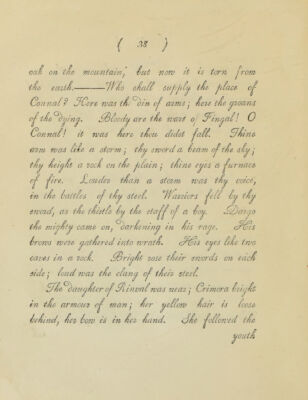 ( 38 )
oak on the mountain; but now it is torn from
the earth.———Who shall supply the place of
Connal? Here was the din of arms; here the groans
of the dying. Bloody are the wars of Fingal! O
Connal! it was here thou didst fall. Thine
arm was like a storm; thy sword a beam of the sky;
thy height a rock on the plain; thine eyes a furnace
of fire. Louder than a storm was thy voice,
in the battles of thy steel. Warriors fell by thy
sword, as the thistle by the staff of a boy. Dargo
the mighty came on, darkening in his rage. His
brows were gathered into wrath. His eyes like two
caves in a rock. Bright rose their swords on each
side; loud was the clang of their steel.
The daughter of Rinval was near; Crimora bright
in the armour of man; her yellow hair is loose
behind, her bow is in her hand. She followed the
youth